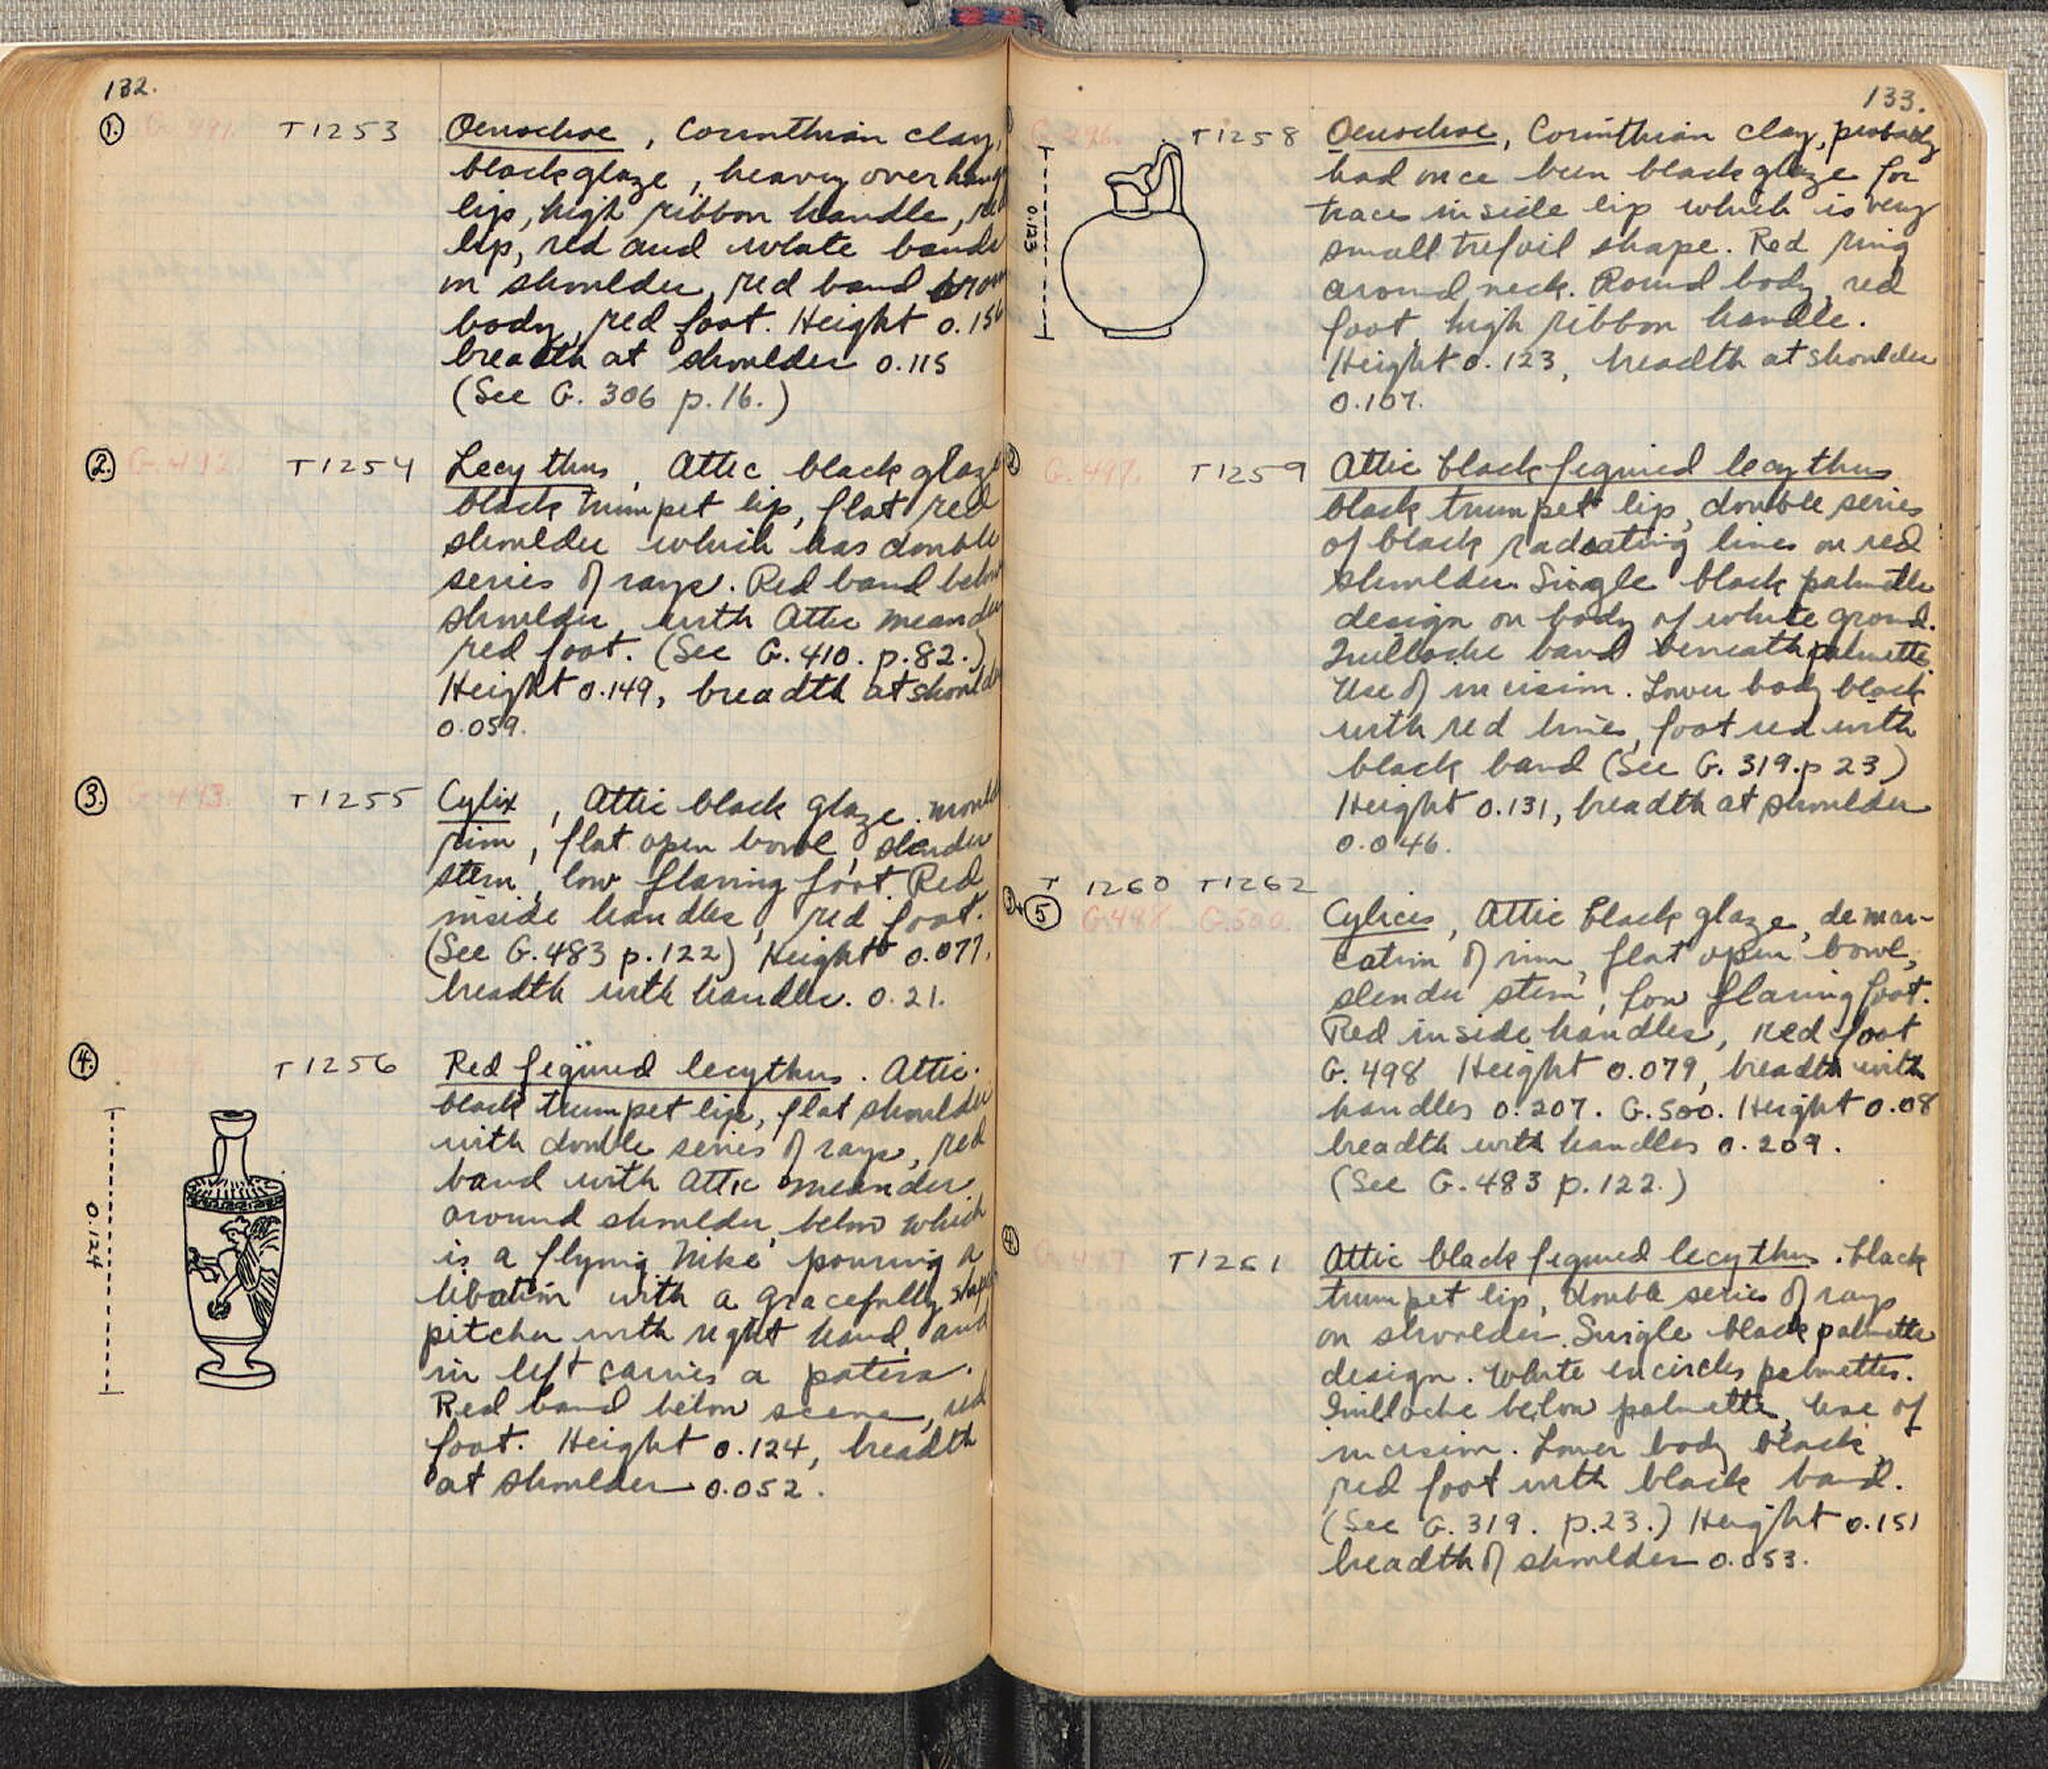 132.
1. G.491. T1253 Oenochoe, Corinthian clay,
black glaze, heavy overhang
lip, high ribbon handle, red
lip, red and white bands
on shoulder, red band around
body, red foot. Height 0.156
breadth at shoulder 0.115
(See G. 306 p.16.)
2. G.492. T1254 Lecythus, Attic black glaze
black trumpet lip, flat red
shoulder which has double
series of rays. Red band below
shoulder with Attic meander
red foot. (See G.410. p.82.)
Height 0.149, breadth at shoulder
0.059.
3. G.493. T1255 Cylix, Attic black glaze. mould
rim, flat open bowl, slender
stem, low flaring foot. Red
inside handles, red foot.
(See G.483 p.122) Height 0.077,
breadth with handles. 0.21.
4. T1256 Red figured lecythus. Attic.
black trumpet lip, flat shoulder
with double series of rays, red
band with Attic meander
around shoulder, below which
is a flying Nike pouring a
libation with a gracefully shaped
pitcher with right hand, and
in left carries a patera.
Red band below scene, red
foot. Height 0.124, breadth
at shoulder 0.052.
0.124
133.
G.496. T1258 Oenochoe, Corinthian clay, probably
had once been black glaze for
traces inside lip which is very
small trefoil shape. Red ring
around neck. Round body, red
foot, high ribbon handle.
Height 0.123, breadth at shoulder
0.107.
0.123
2 G.497. T1259 Attic black figured lecythus
black trumpet lip, double series
of black radiating lines on red
shoulder. Single black palmette
design on body of white ground.
Guilloche band beneath palmette.
Use of incision. Lower body black
with red lines, foot red with
black band (See G. 319.p 23)
Height 0.131, breadth at shoulder
0.046.
T 1260 T1262
5 G.498. G.500. Cylices, Attic black glaze, demar-
cation of rim, flat open bowl,
slender stem, low flaring foot.
Red inside handles, red foot
G. 498 Height 0.079, breadth with
handles 0.207. G.500. Height 0.08
breadth with handles 0.209.
(See G.483 p.122.)
4. T1261 Attic black figured lecythus. Black
trumpet lip, double series of rays
on shoulder. Single black palmette
design. White encircles palmettes.
Guilloche below palmette, use of
incision. Lower body black,
red foot with black band.
(See G.319. p.23.) Height 0.151
breadth of shoulder 0.053.